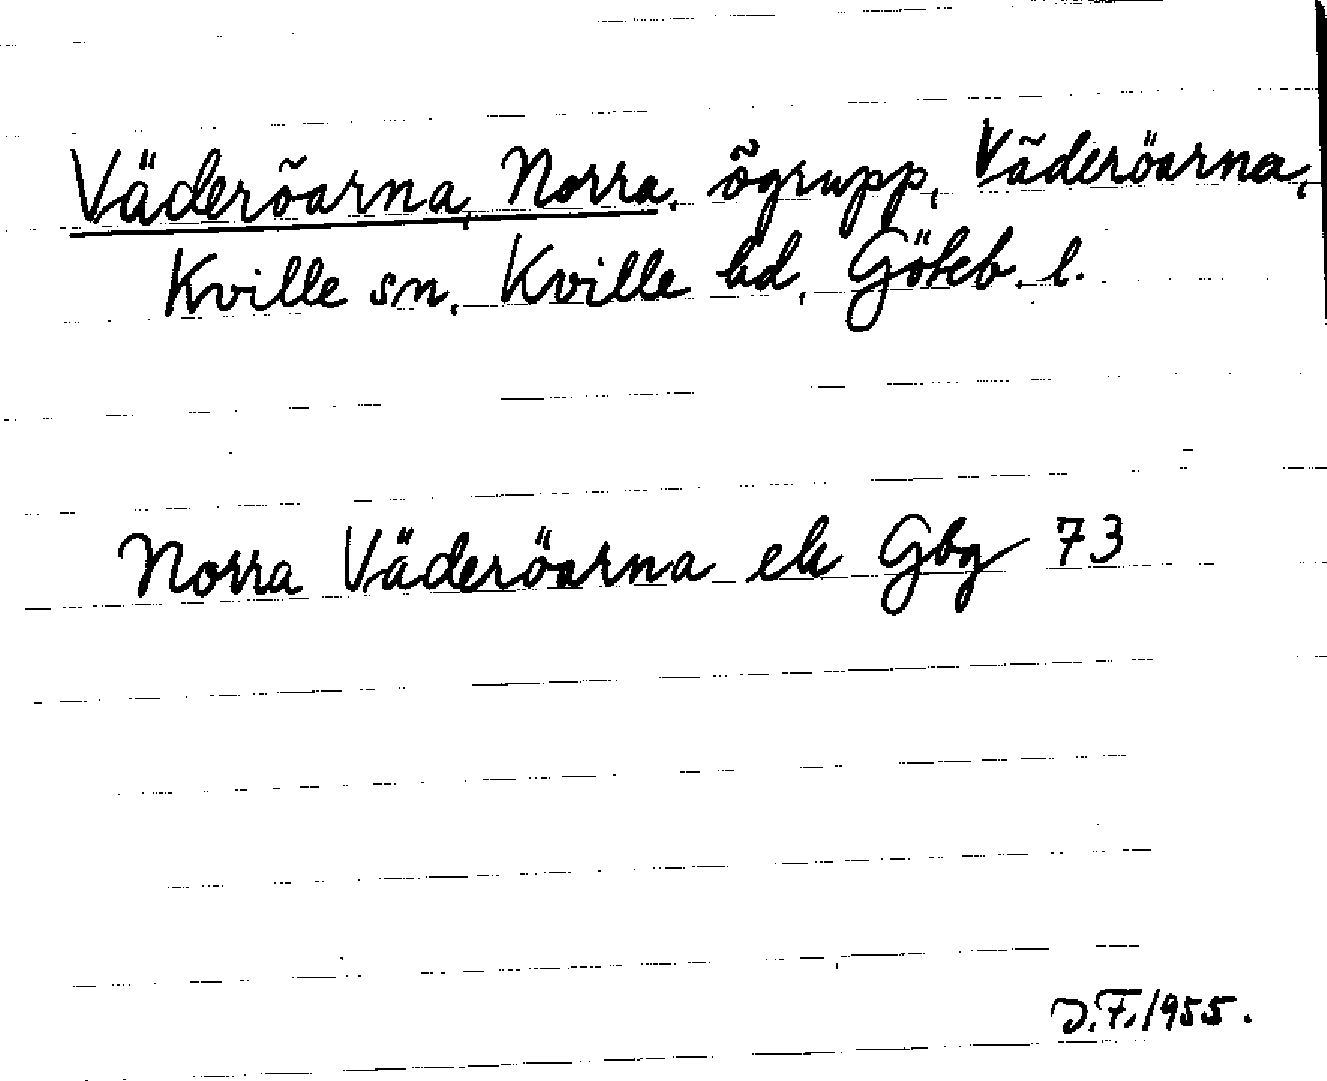 Väderöarna, Norra, ögrupp, Väderöarna,
Kville sn, Kville hd, Göteb. l.
Norra Väderöarna ek Gbg 73
D.F. 1955.